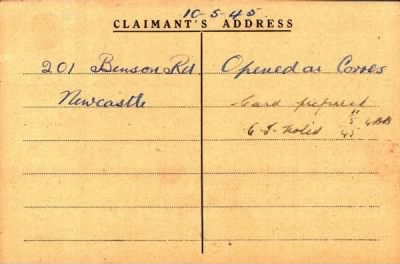 10-5-45
CLAIMANT'S ADDRESS
201 Benson Rd
Newcastle
Opened as Corres
Card prepared
C.I. noted